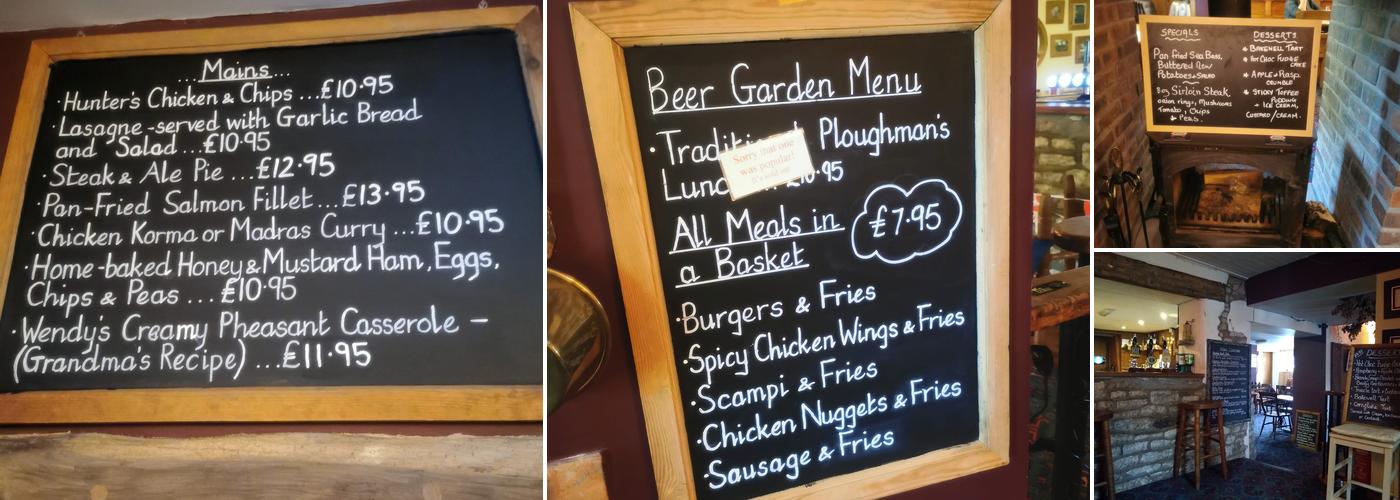 ...Mains...
·Hunter's Chicken & Chips ...£10·95
·Lasagne-served with Garlic Bread
and Salad ...£10·95
·Steak & Ale Pie ...£12·95
·Pan-Fried Salmon Fillet...£13·95
·Chicken Korma or Madras Curry ...£10·95
·Home-baked Honey & Mustard Ham, Eggs,
Chips & Peas ...£10·95
·Wendy's Creamy Pheasant Casserole –
(Grandma's Recipe) ...£11·95
Beer Garden Menu
· Ploughman's
Sorry that one
was popular!
It's sold out
£10·95
All Meals in
a Basket
£7·95
·Burgers & Fries
·Spicy Chicken Wings & Fries
·Scampi & Fries
·Chicken Nuggets & Fries
·Sausage & Fries
SPECIALS
Pan fried Sea Bass,
Buttered New
Potatoes & Salad
8oz Sirloin Steak,
onion rings, Mushrooms
Tomato, Chips
& Peas.
DESSERTS
* BAKEWELL TART
* HOT CHOC FUDGE
CAKE
* APPLE & Rasp.
CRUMBLE
* STICKY TOFFEE
PUDDING
+ ICE CREAM,
CUSTARD/CREAM.
Bakewell Tart